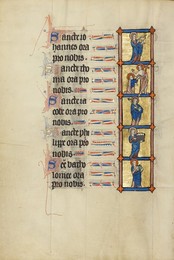 Sancte io
hannes ora
pro nobis.
Sancte tho
ma ora pro
nobis.
Sancte ia
cobe ora pro
nobis.
Sancte phi
lippe ora pro
nobis.
Sancte bartho
lomee ora
pro nobis.